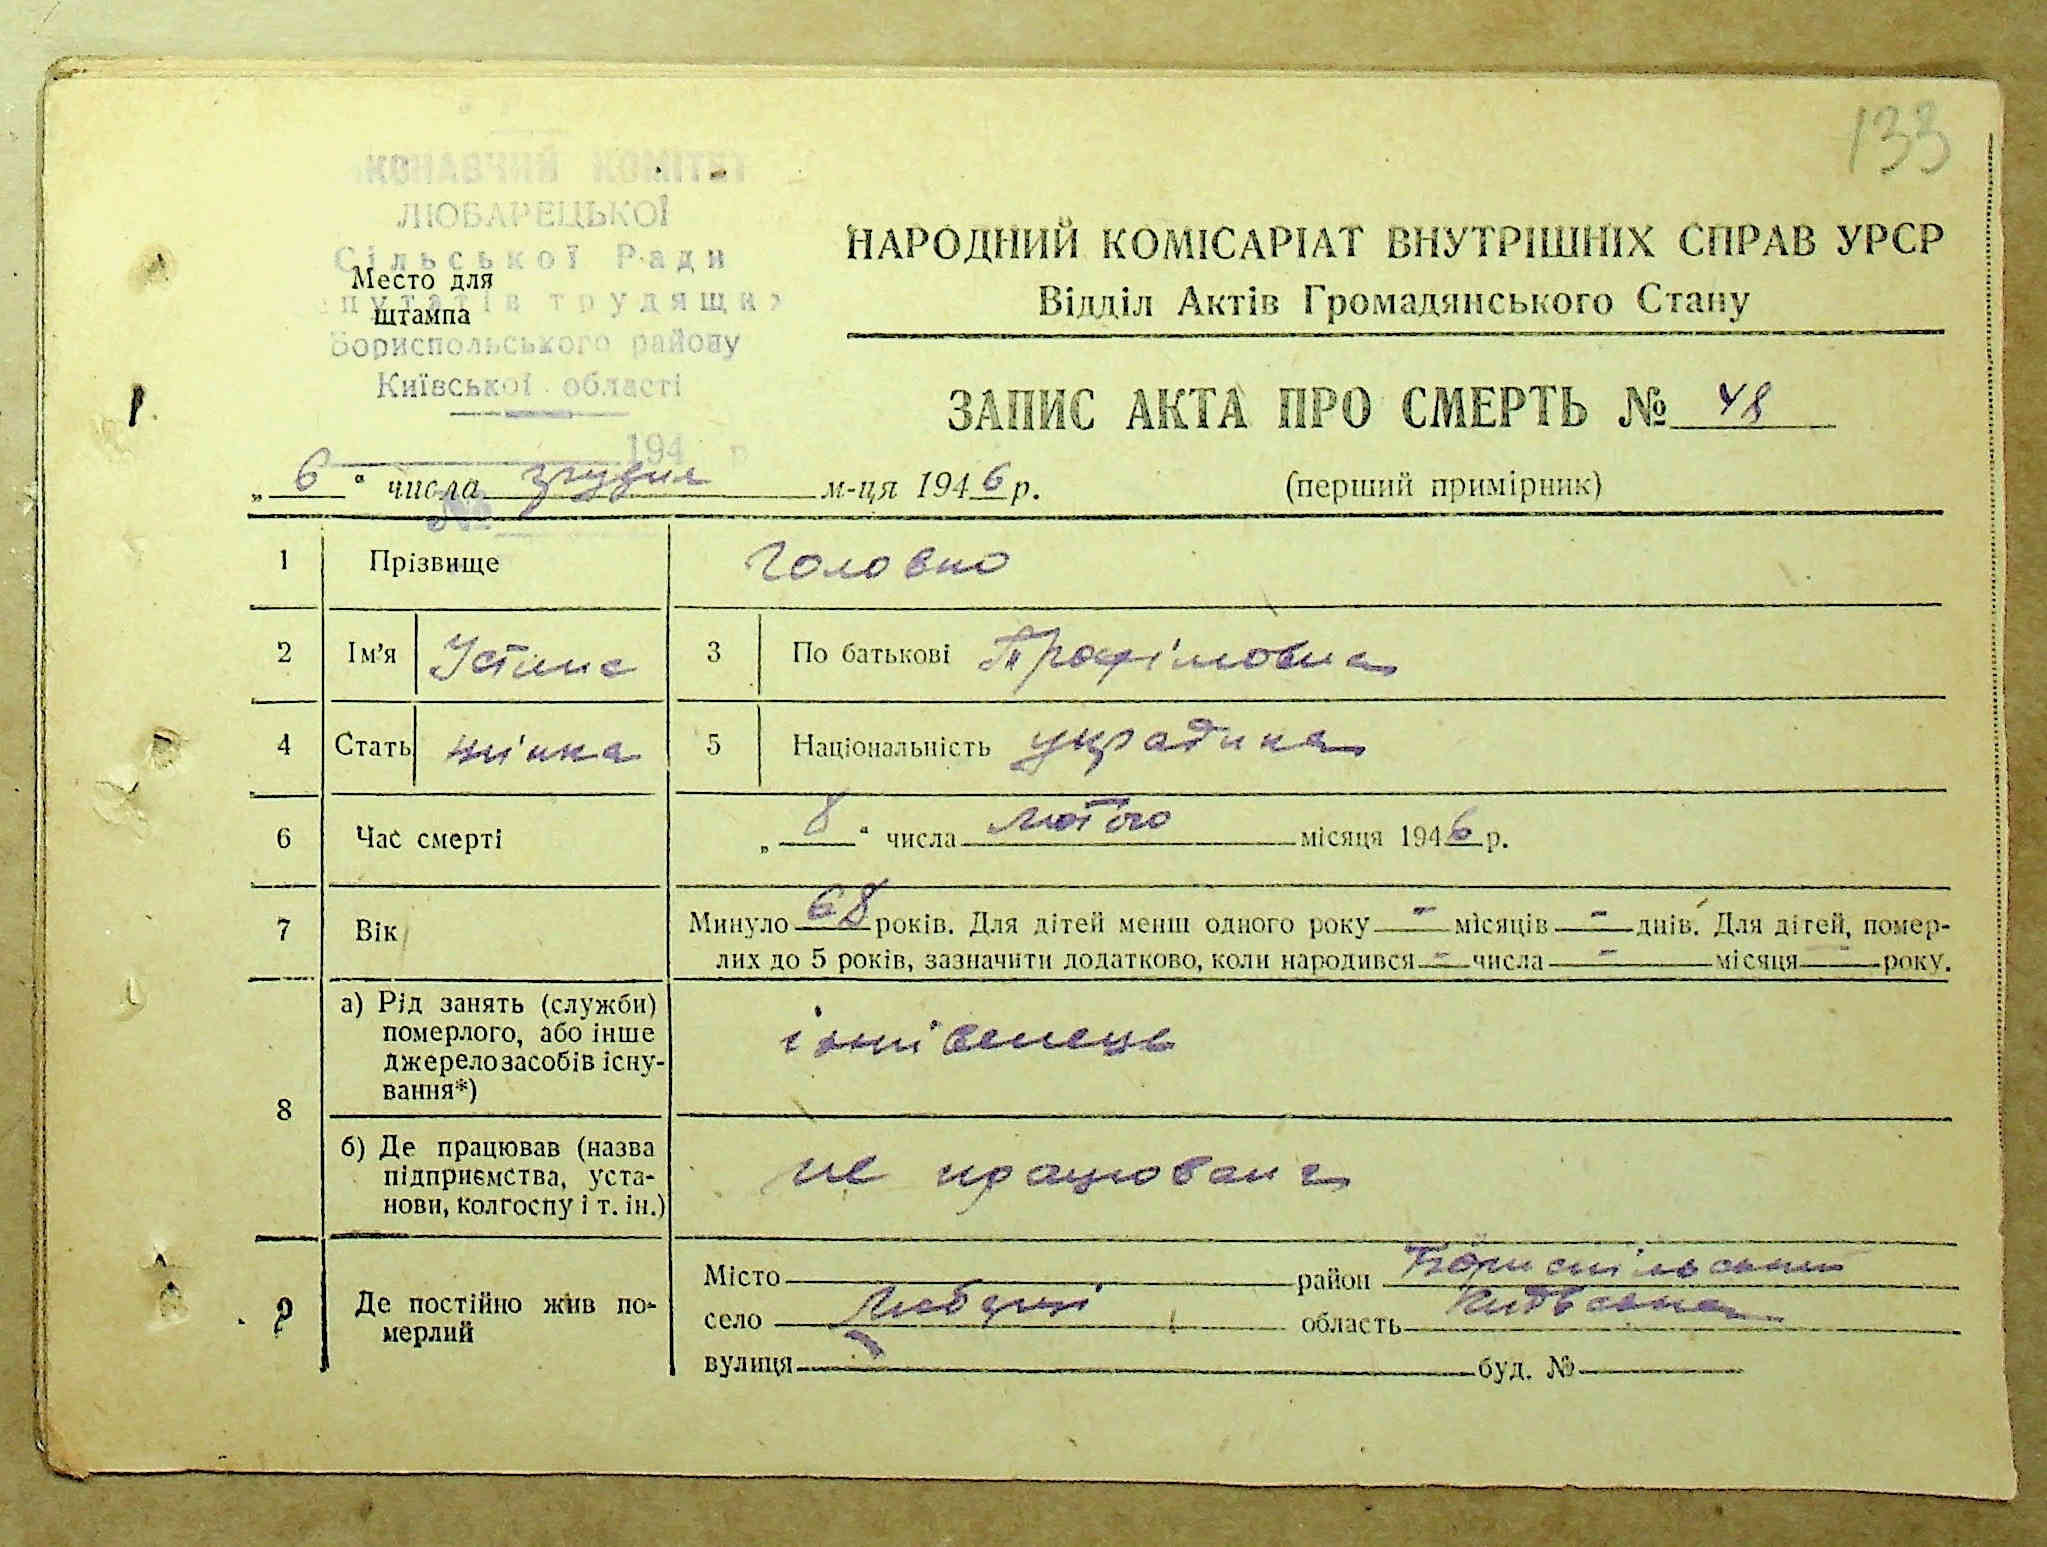 133
КОНАВЧИЙ КОМІТЕТ
ЛЮБАРЕЦЬКОЇ
Сільської Ради
Место для
путатів трудящих
штампа
Бориспольського району
Київської області
194
№
НАРОДНИЙ КОМІСАРІАТ ВНУТРІШНІХ СПРАВ УРСР
Відділ Актів Громадянського Стану
ЗАПИС АКТА ПРО СМЕРТЬ № 48
„ 6 “ числа грудня м-ця 1946 р. (перший примірник)
1 Прізвище Головко
2 Ім’я Устина 3 По батькові Трофімовна
4 Стать жінка 5 Національність
6 Час смерті „ 8 “ числа лютого місяця 1946 р.
7 Вік Минуло 68 років. Для дітей менш одного року - місяців - днів. Для дітей, помер-
лих до 5 років, зазначити додатково, коли народився - числа - місяця - року.
8 а) Рід занять (служби)
померлого, або інше
джерело засобів існу-
вання*)
іжнівенець
б) Де працював (назва
підприємства, уста-
нови, колгоспу і т. ін.)
не працювана
9 Де постійно жив по-
мерлий
Місто район Бориспільський
село Любарці область Київська
вулиця буд. №